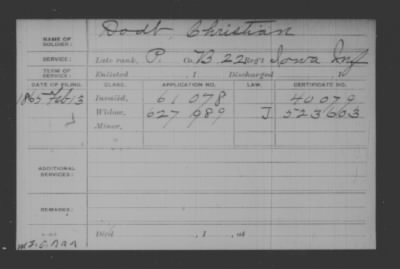 NAME OF SOLDIER: Dodt, Christian
SERVICE: Late rank, P. Co. B, 22 Reg't Iowa Inf
TERM OF SERVICE: Enlisted , 1 Discharged , 1
DATE OF FILING. CLASS. APPLICATION NO. LAW. CERTIFICATE NO.
1865 Feb 13 Invalid, 61 078 40 079
Widow, 627 989 J 523 603
Minor,
ADDITIONAL SERVICES:
REMARKS:
Died , 1 , at